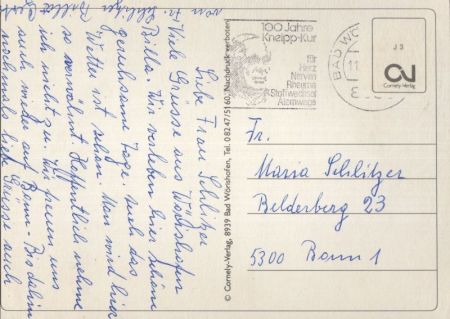 von Fr. Schlitzer Billa
Liebe Frau Schlitzer
Viele Grüsse aus Wörishofen
Billa. Wir verleben hier schöne
gemeinsame Tage. Auch das
Wetter ist schön. Man wird hier
so verwöhnt. Hoffentlich nehme
ich nicht zu. Wir freuen uns
auch wieder auf Bonn-Bad
nochmals liebe Grüsse auch
© Cornely-Verlag, 8939 Bad Wörishofen, Tel. 08247/5160, Nachdruck verboten
100 Jahre
Kneipp-Kur
für
Herz
Nerven
Rheuma
Stoffwechsel
Atemwege
BAD WÖ
11
J 3
Cornely-Verlag
Fr.
Maria Schlitzer
Belderberg 23
5300 Bonn 1